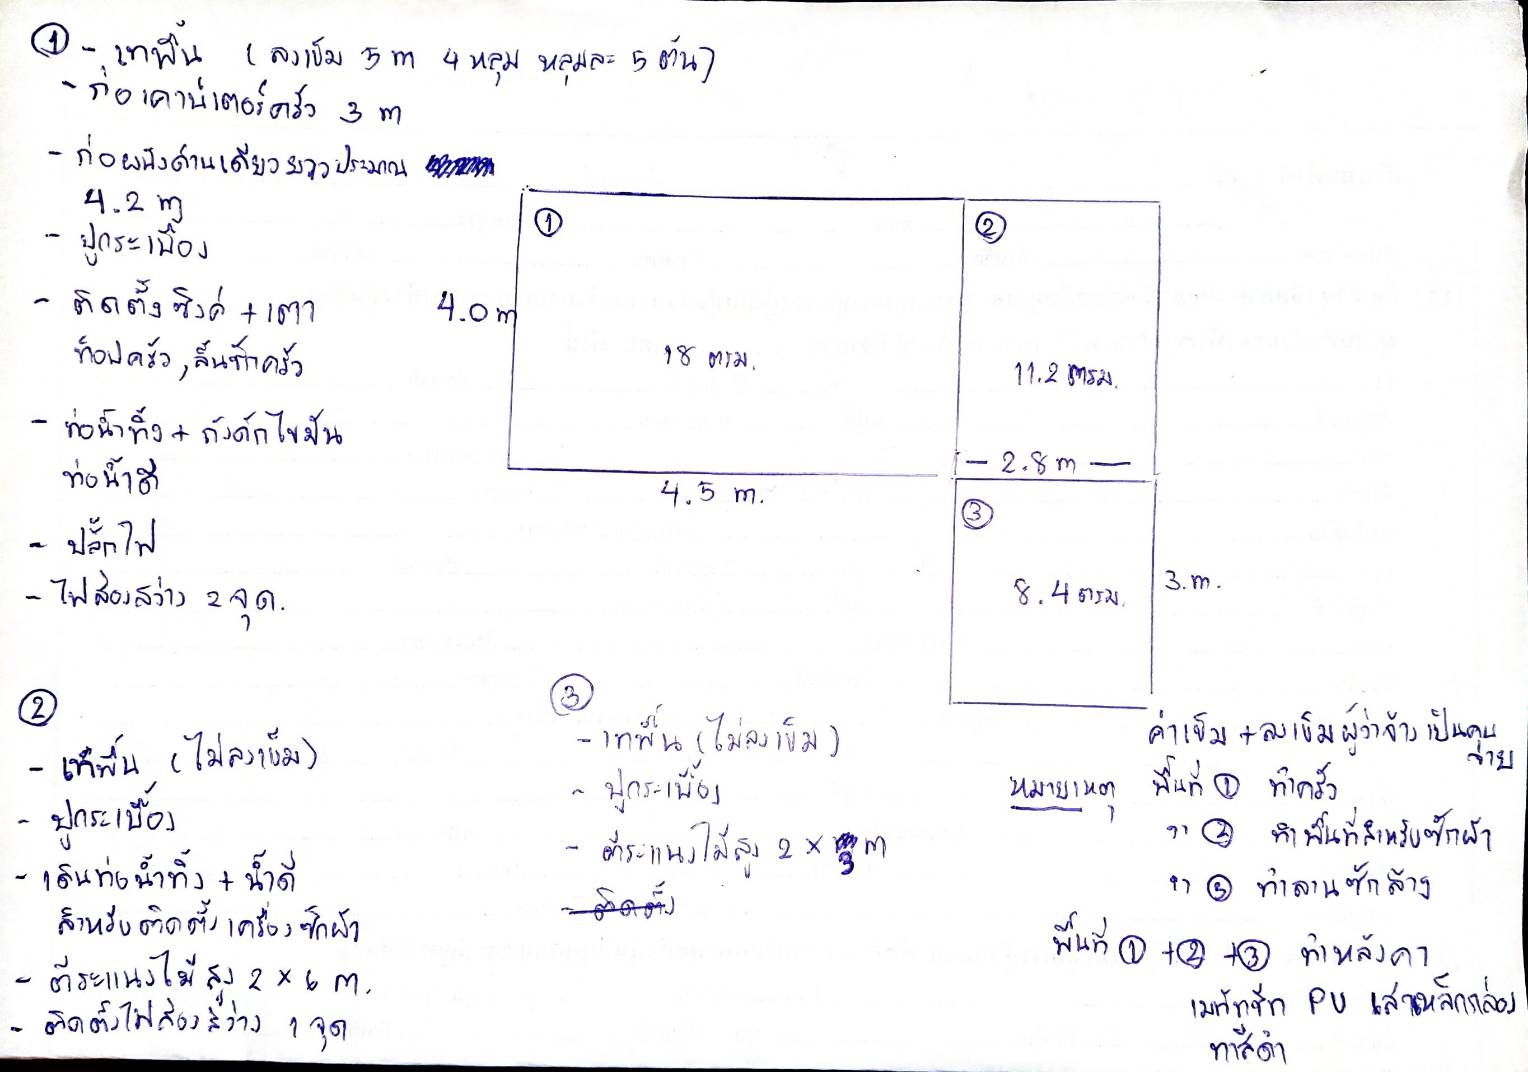 ① - เทพื้น (ลงเข็ม 3 m 4 หลุม หลุมละ 5 ต้น)
- ก่อเคาน์เตอร์ครัว 3 m
- ก่อผนังด้านเดียวยาวประมาณ
4.2 m
- ปูกระเบื้อง
- ติดตั้งซิงค์ + เตา
ท็อปครัว, ลิ้นชักครัว
- ท่อน้ำทิ้ง + ถังดักไขมัน
ท่อน้ำดี
- ปลั๊กไฟ
- ไฟส่องสว่าง 2 จุด.
①
4.0 m
18 ตรม.
4.5 m.
②
11.2 ตรม.
- 2.8 m -
③
8.4 ตรม.
3.m.
②
- เทพื้น (ไม่ลงเข็ม)
- ปูกระเบื้อง
- เดินท่อน้ำทิ้ง + น้ำดี
สำหรับติดตั้งเครื่องซักผ้า
- ตีระแนงไม้สูง 2 x 6 m.
- ติดตั้งไฟส่องสว่าง 1 จุด
③
- เทพื้น (ไม่ลงเข็ม)
- ปูกระเบื้อง
- ตีระแนงไม้สูง 2 x 3 m
- ติดตั้ง
ค่าเข็ม + ลงเข็มผู้ว่าจ้างเป็นคน
จ่าย
หมายเหตุ พื้นที่ ① ทำครัว
" ② ทำพื้นที่สำหรับซักผ้า
" ③ ทำลานซักล้าง
พื้นที่ ① + ② + ③ ทำหลังคา
เมทัลชีท PU เสาเหล็กกล่อง
ทาสีดำ